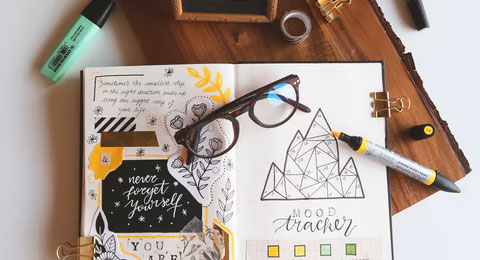 Sometimes the smallest step
in the right direction ends up
being the biggest step of
your life.
&
never
forget
yourself
YOU
ARE
MOOD
tracker